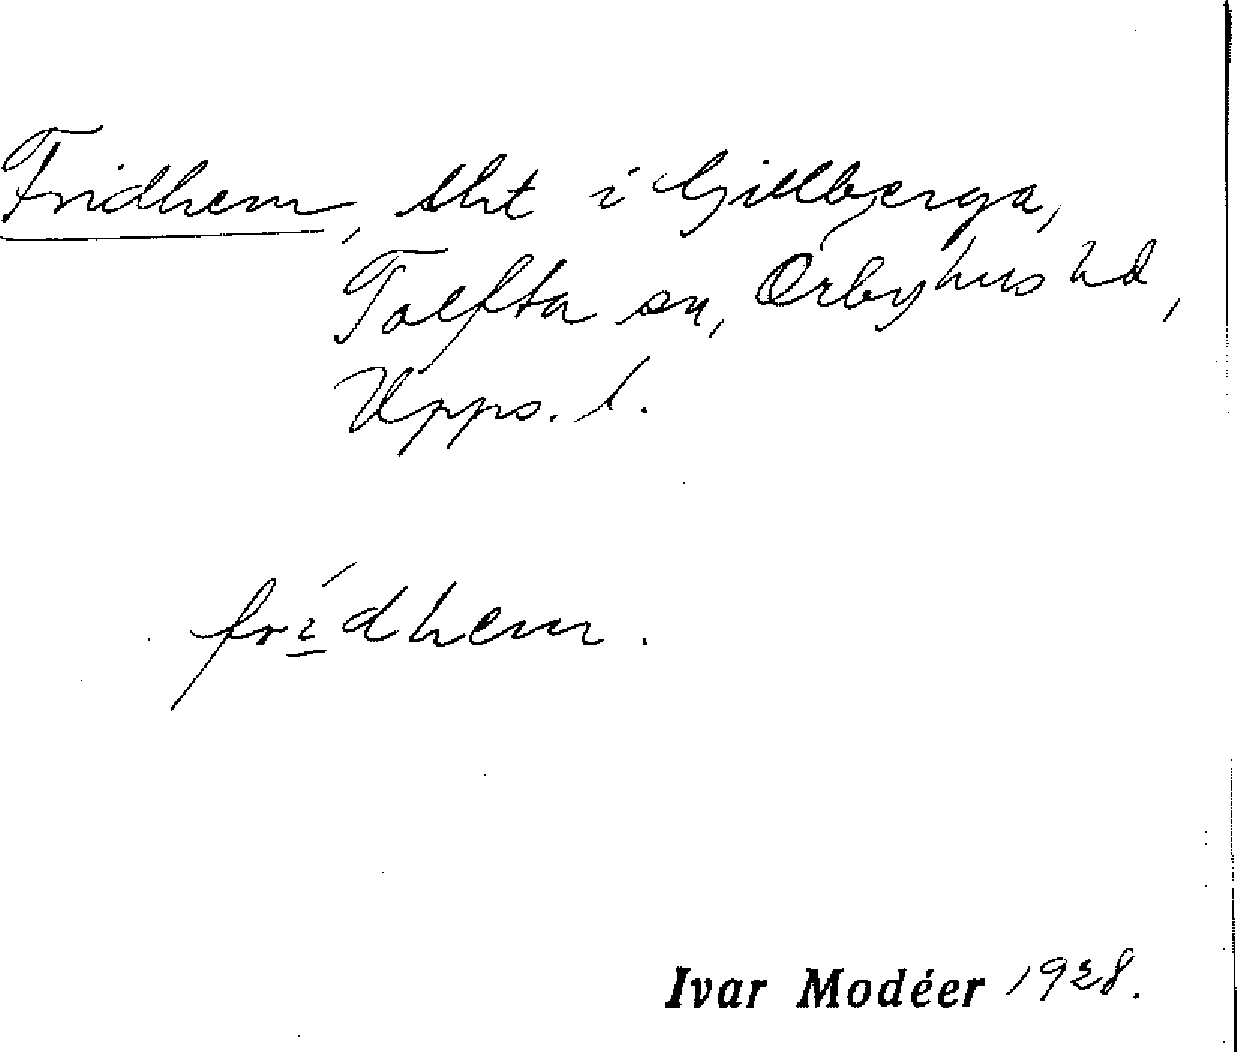 Fridhem, lht i Gillberga,
Tolfta sn, Örbyhus hd,
Upps. l.
frídhem.
Ivar Modéer 1928.